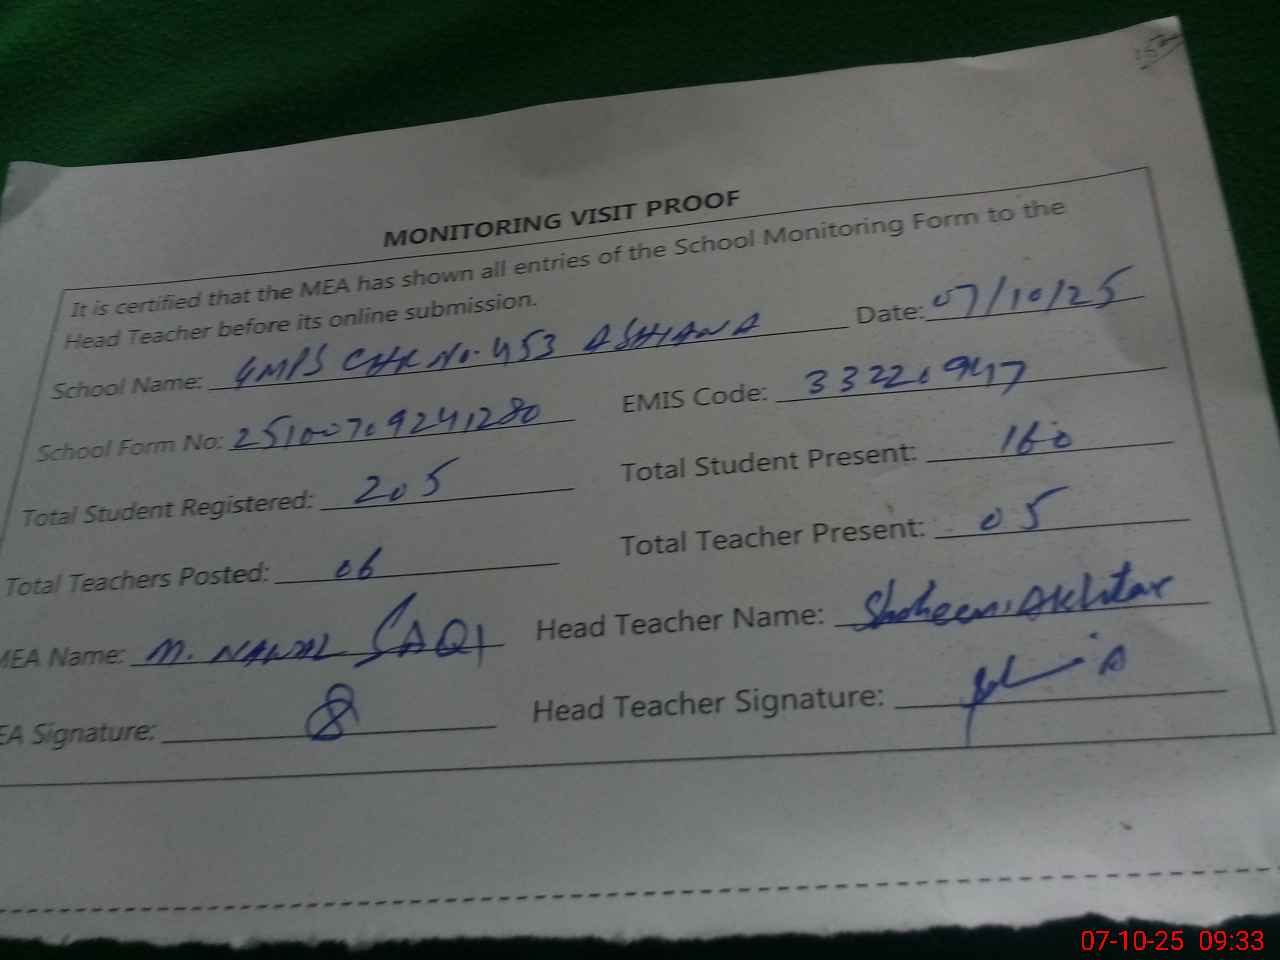 MONITORING VISIT PROOF
It is certified that the MEA has shown all entries of the School Monitoring Form to the
Head Teacher before its online submission.
School Name: GMPS CHK No. 453 ASHIANA Date: 07/10/25
School Form No: 25100709241280 EMIS Code: 33220947
Total Student Registered: 205 Total Student Present: 160
Total Teachers Posted: 06 Total Teacher Present: 05
MEA Name: M. SAQI Head Teacher Name: Shaheen Akhtar
EA Signature: Head Teacher Signature:
07-10-25 09:33